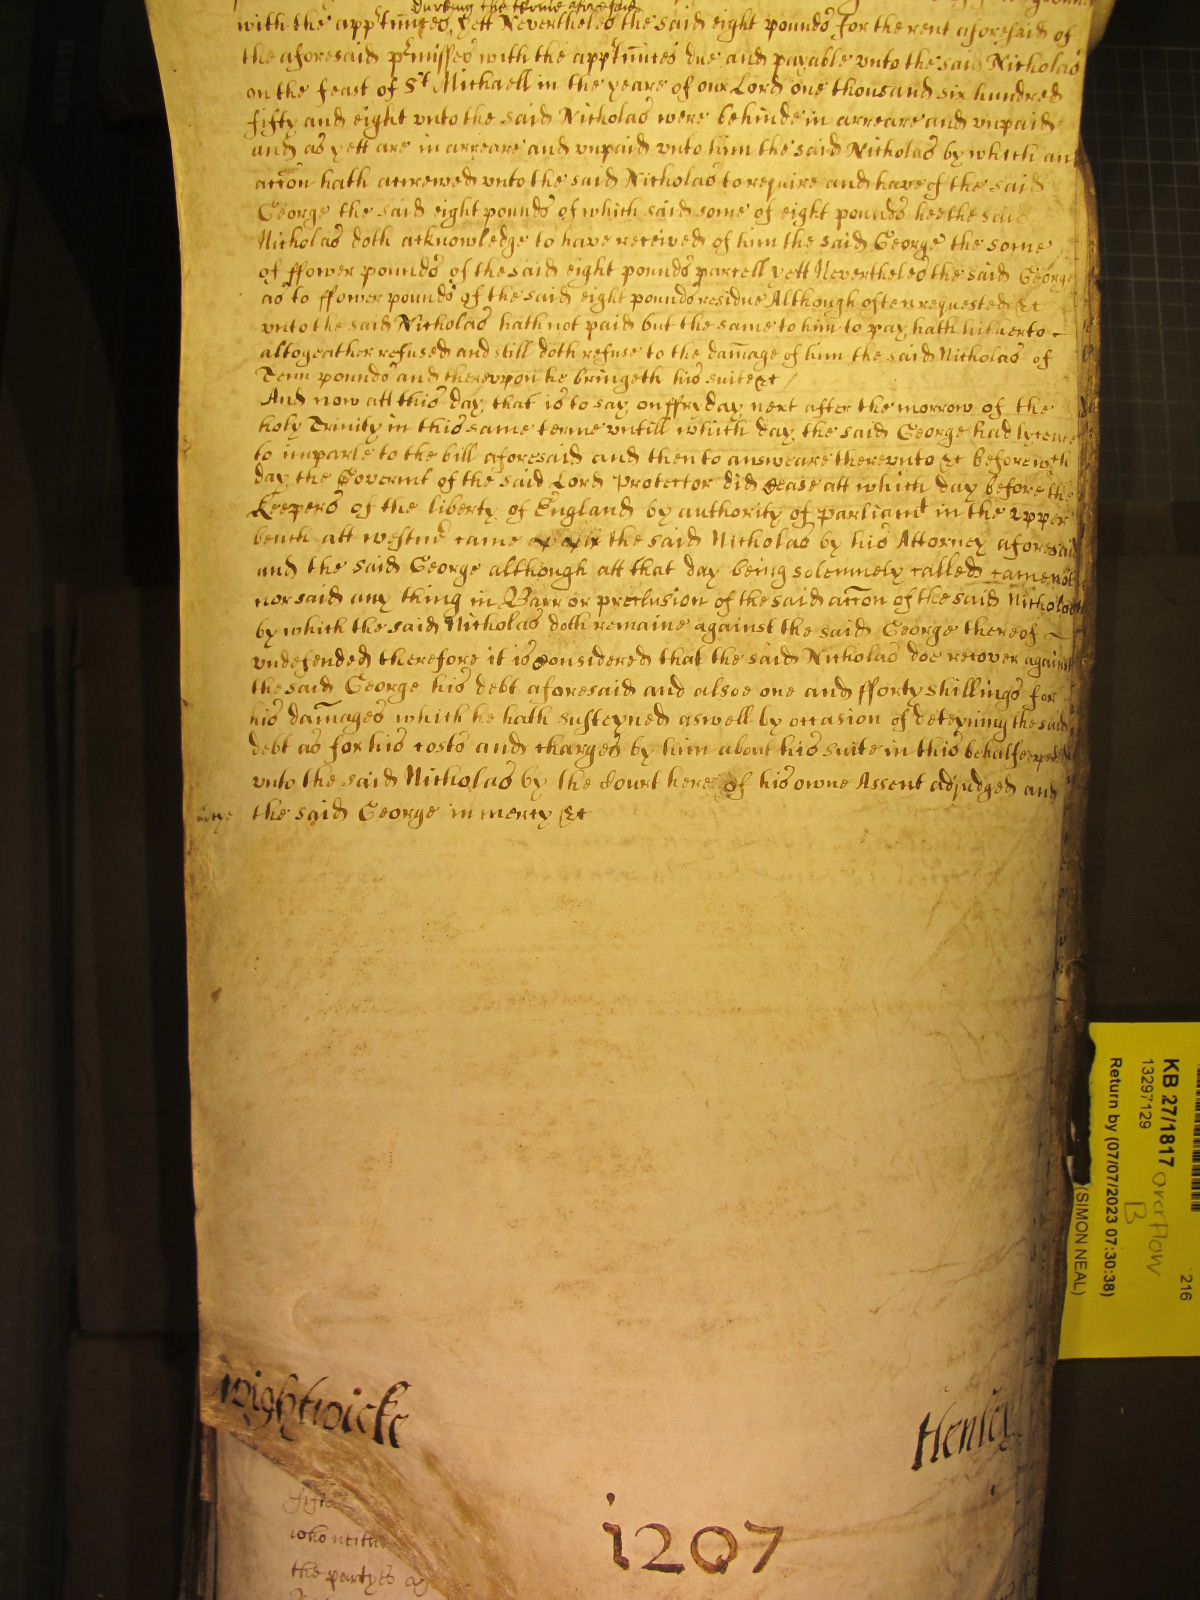 during the terme aforesaid
with the appᵗtin̄ces, yett Nevertheles the said eight pounds for the rent aforesaid of
the aforesaid pʳmisses with the appᵗtin̄ces due and payable vnto the said Nicholas
on the feast of Sᵗ Michaell in the yeare of our Lord one thousand six hundred
fifty and eight vnto the said Nicholas were behinde in arreare and vnpaid
and as yett are in arreare and vnpaid vnto him the said Nicholas by which an
acc̄on hath accrewed vnto the said Nicholas to require and have of the said
George the said eight pounds of which said some of eight pounds hee the said
Nicholas doth acknowledge to have received of him the said George the some
of ffower pounds of the said eight pounds parcell yett Nevertheles the said George
as to ffower pounds of the said eight pounds residue Although often requested &c
vnto the said Nicholas hath not paid but the same to him to pay hath hitherto
altogeather refused and still doth refuse to the dam̄age of him the said Nicholas of
Tenn pounds and therevpon he bringeth his suite &c /
And now att this day that is to say on ffryday next after the morrow of the
holy Trinity in this same terme vntill which day the said George had lycence
to imparle to the bill aforesaid and then to answeare therevnto &c before wᶜh
day the Govermt of the said Lord Protector did Cease att which day before the
Keepers of the liberty of England by authority of parliamᵗ in the vpper
bench att westmʳ came the said Nicholas by his Attorney aforesaid
and the said George although att that day being solemnely called came not
nor said any thing in Barr or preclusion of the said acc̄on of the said Nicholas
by which the said Nicholas doth remaine against the said George thereof
vndefended therefore it is Considered that the said Nicholas doe recover against
the said George his debt aforesaid and alsoe one and fforty shillings for
his dam̄ages which he hath susteyned aswell by occasion of deteyning the said
debt as for his costs and charges by him about his suite in this behalfe expended
vnto the said Nicholas by the Court here of his owne Assent adjudged and
the said George in mercy &c
wightwicke
Henley
1207
who
the partyes
KB 27/1817 overflow
B
13297129
216
Return by (07/07/2023 07:30:38)
(SIMON NEAL)